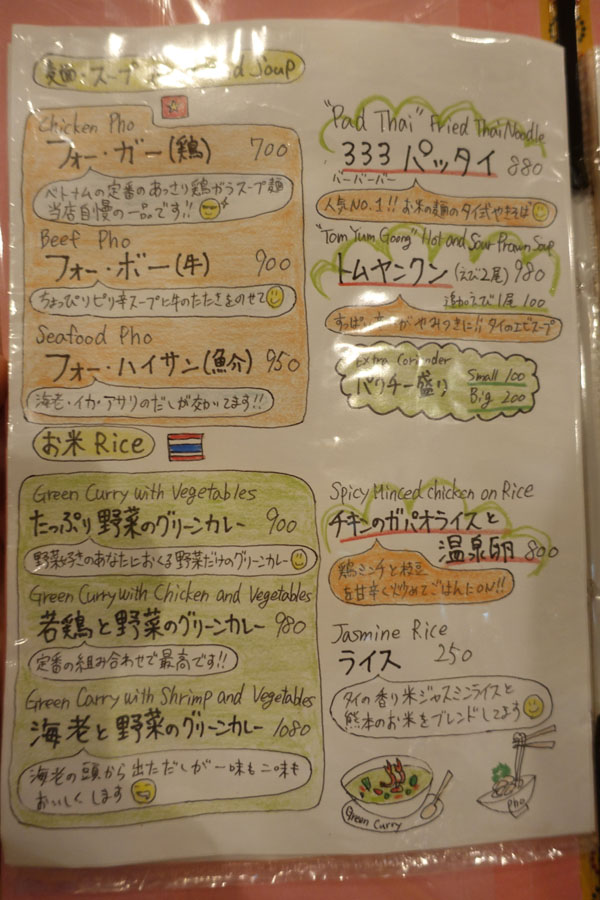 麺・スープ and Soup
Chicken Pho
フォー・ガー(鶏) 700
ベトナムの定番のあっさり鶏ガラスープ麺
当店自慢の一品です!!
Beef Pho
フォー・ボー(牛) 900
ちょっぴりピリ辛スープに牛のたたきをのせて
Seafood Pho
フォー・ハイサン(魚介) 950
海老・イカ・アサリのだしが効いてます!!
"Pad Thai" Fried Thai Noodle
333 パッタイ 880
バーバーバー
人気NO.1!! お米の麺のタイ式やきそば
"Tom Yum Goong" Hot and Sour Prawn Soup
トムヤンクン(えび2尾) 980
追加えび1尾 100
がやみつきに!! タイのエビスープ
Extra Coriander
パクチー盛り Small 100
Big 200
お米 Rice
Green Curry with Vegetables
たっぷり野菜のグリーンカレー 900
野菜好きのあなたにおくる野菜だけのグリーンカレー
Green Curry with Chicken and Vegetables
若鶏と野菜のグリーンカレー 980
定番の組み合わせで最高です!!
Green Carry with Shrimp and Vegetables
海老と野菜のグリーンカレー 1080
海老の頭から出ただしが一味も二味も
おいしくします
Spicy Minced chicken on Rice
チキンのガパオライスと
温泉卵 800
鶏ミンチと枝豆
を甘辛く炒めてごはんにON!!
Jasmine Rice
ライス 250
タイの香り米ジャスミンライスと
熊本のお米をブレンドしてます
Green Curry
Pho